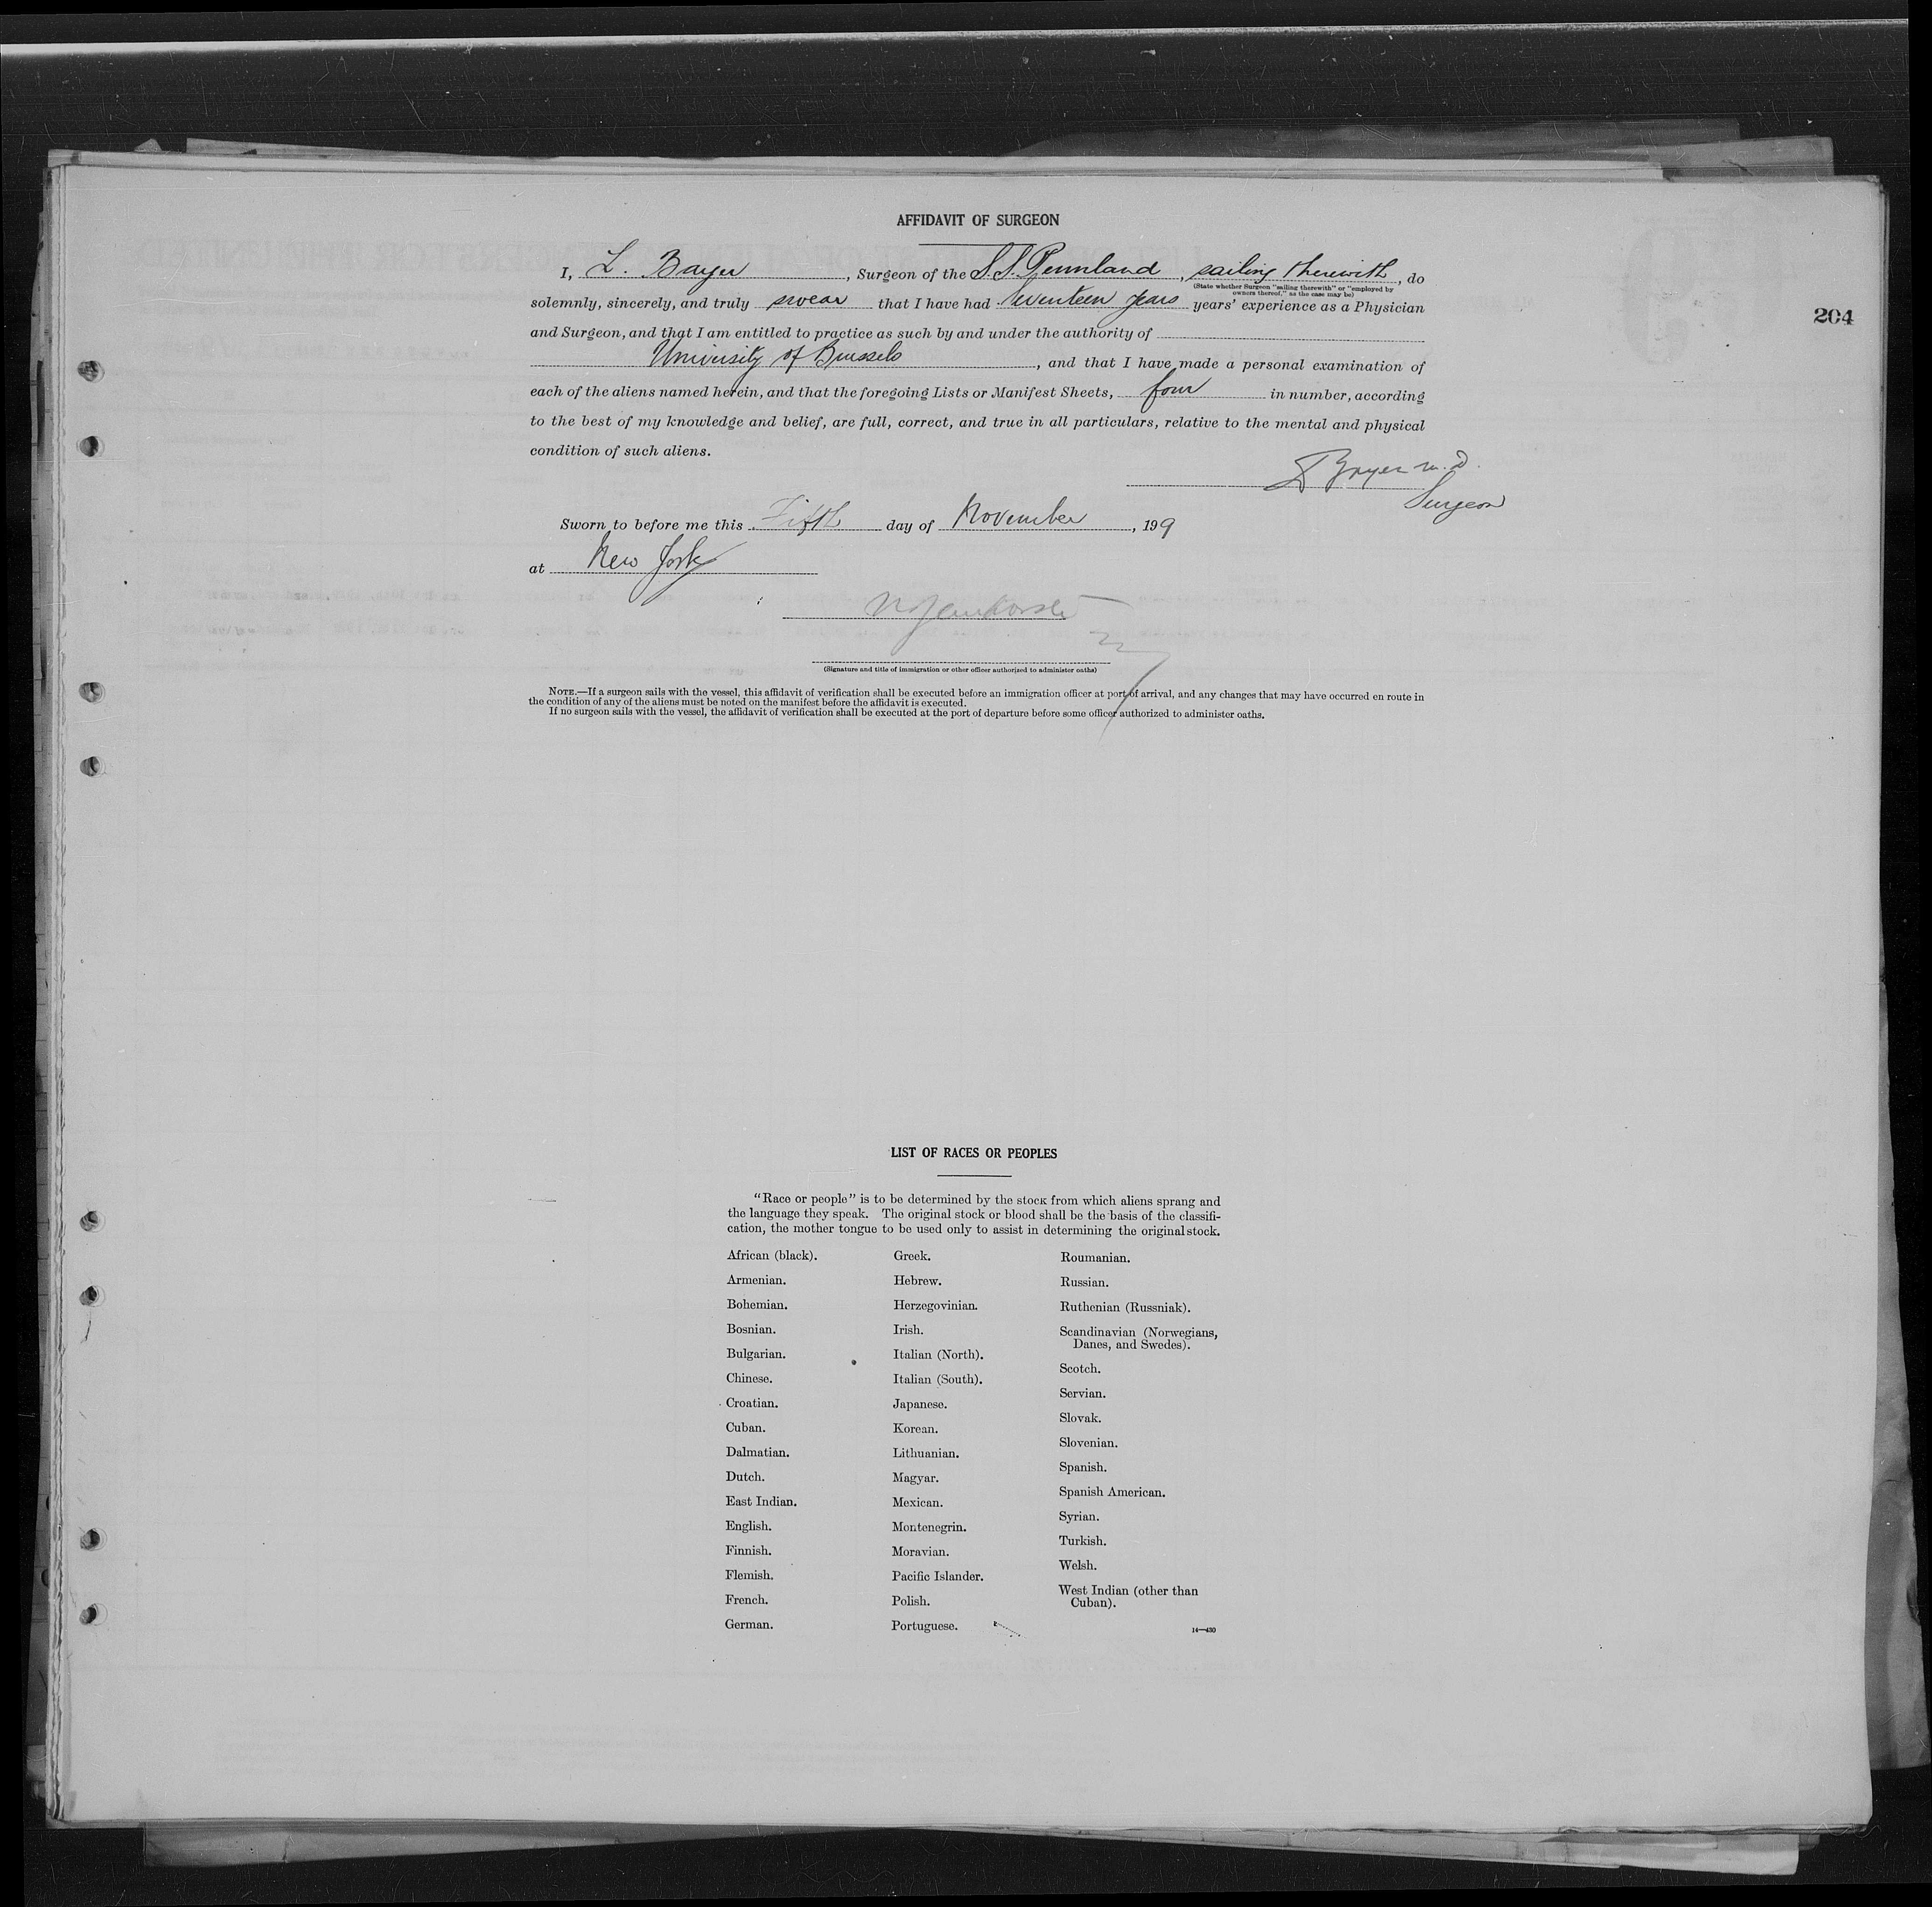 AFFIDAVIT OF SURGEON
I, L. Bayer, Surgeon of the S.S. Pennland, sailing therewith, do
(State whether Surgeon "sailing therewith" or "employed by
owners thereof," as the case may be)
solemnly, sincerely, and truly swear that I have had seventeen years years' experience as a Physician
204
and Surgeon, and that I am entitled to practice as such by and under the authority of
University of Brussels, and that I have made a personal examination of
each of the aliens named herein, and that the foregoing Lists or Manifest Sheets, four in number, according
to the best of my knowledge and belief, are full, correct, and true in all particulars, relative to the mental and physical
condition of such aliens.
L Bayer M.D.
Surgeon
Sworn to before me this Fifth day of November, 199
at New York
(Signature and title of immigration or other officer authorized to administer oaths)
NOTE.—If a surgeon sails with the vessel, this affidavit of verification shall be executed before an immigration officer at port of arrival, and any changes that may have occurred en route in
the condition of any of the aliens must be noted on the manifest before the affidavit is executed.
If no surgeon sails with the vessel, the affidavit of verification shall be executed at the port of departure before some officer authorized to administer oaths.
LIST OF RACES OR PEOPLES
"Race or people" is to be determined by the stock from which aliens sprang and
the language they speak. The original stock or blood shall be the basis of the classifi-
cation, the mother tongue to be used only to assist in determining the original stock.
African (black).
Armenian.
Bohemian.
Bosnian.
Bulgarian.
Chinese.
Croatian.
Cuban.
Dalmatian.
Dutch.
East Indian.
English.
Finnish.
Flemish.
French.
German.
Greek.
Hebrew.
Herzegovinian.
Irish.
Italian (North).
Italian (South).
Japanese.
Korean.
Lithuanian.
Magyar.
Mexican.
Montenegrin.
Moravian.
Pacific Islander.
Polish.
Portuguese.
Roumanian.
Russian.
Ruthenian (Russniak).
Scandinavian (Norwegians,
Danes, and Swedes).
Scotch.
Servian.
Slovak.
Slovenian.
Spanish.
Spanish American.
Syrian.
Turkish.
Welsh.
West Indian (other than
Cuban).
14—430